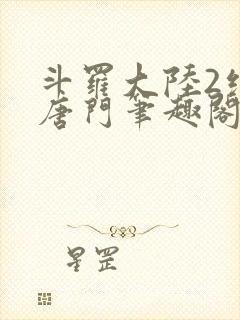 斗羅大陸2
唐門筆趣閣
星罡